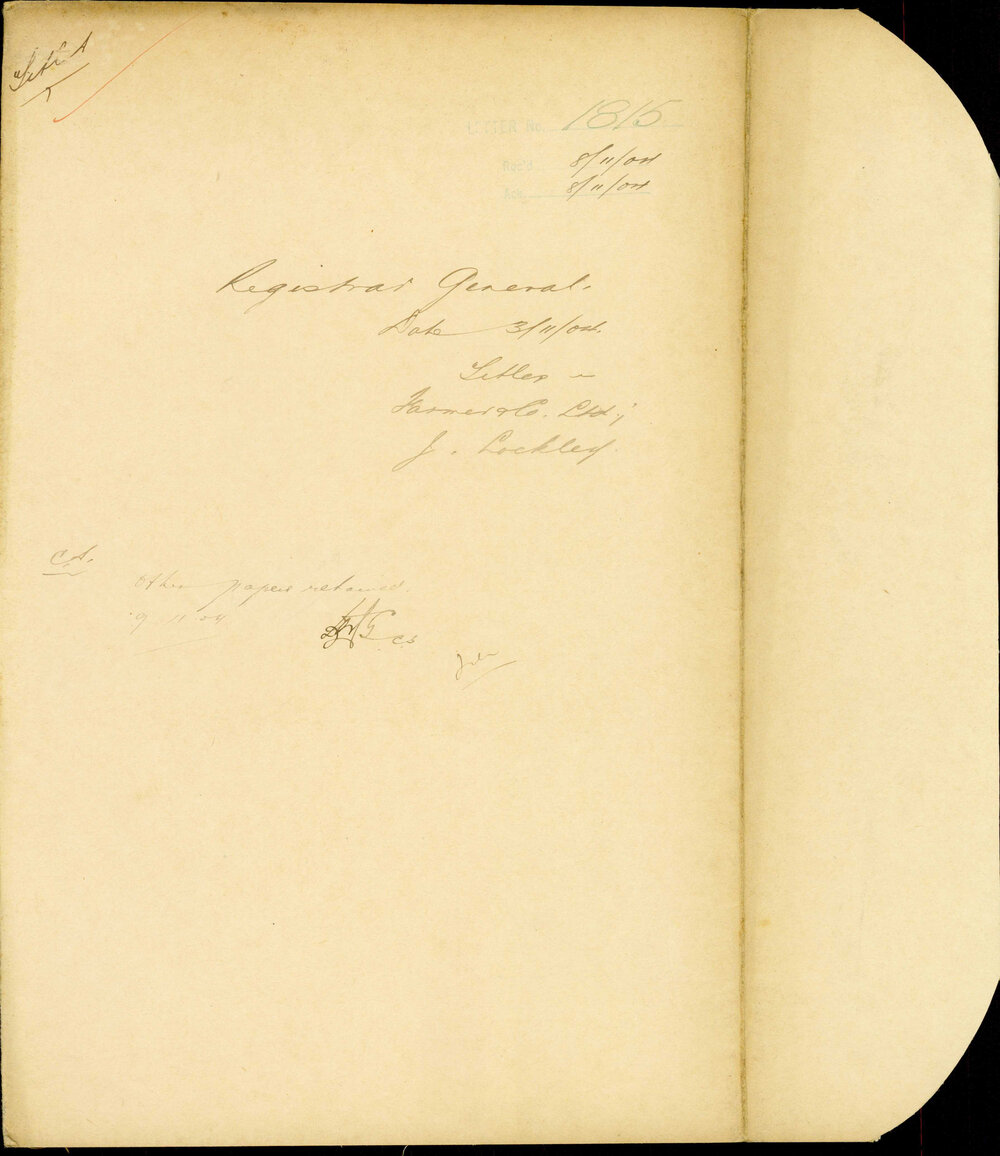 LETTER No. 1815
Rec'd 8/11/04
Ack. 8/11/04
Registrar General.
Date 3/11/04.
Titles –
Farmer & Co. Ltd;
J. Lockley.
C.S.
Other papers retained.
9 11 04
CS